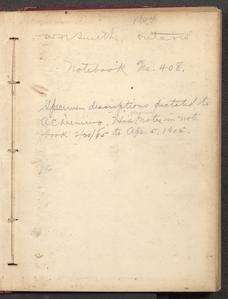 W.N. Smith, Ontario
Notebook No. 408.
Specimen descriptions dictated to
A.C. Deming. Field notes in note
book 2/20/05 to Apr. 5, 1905.